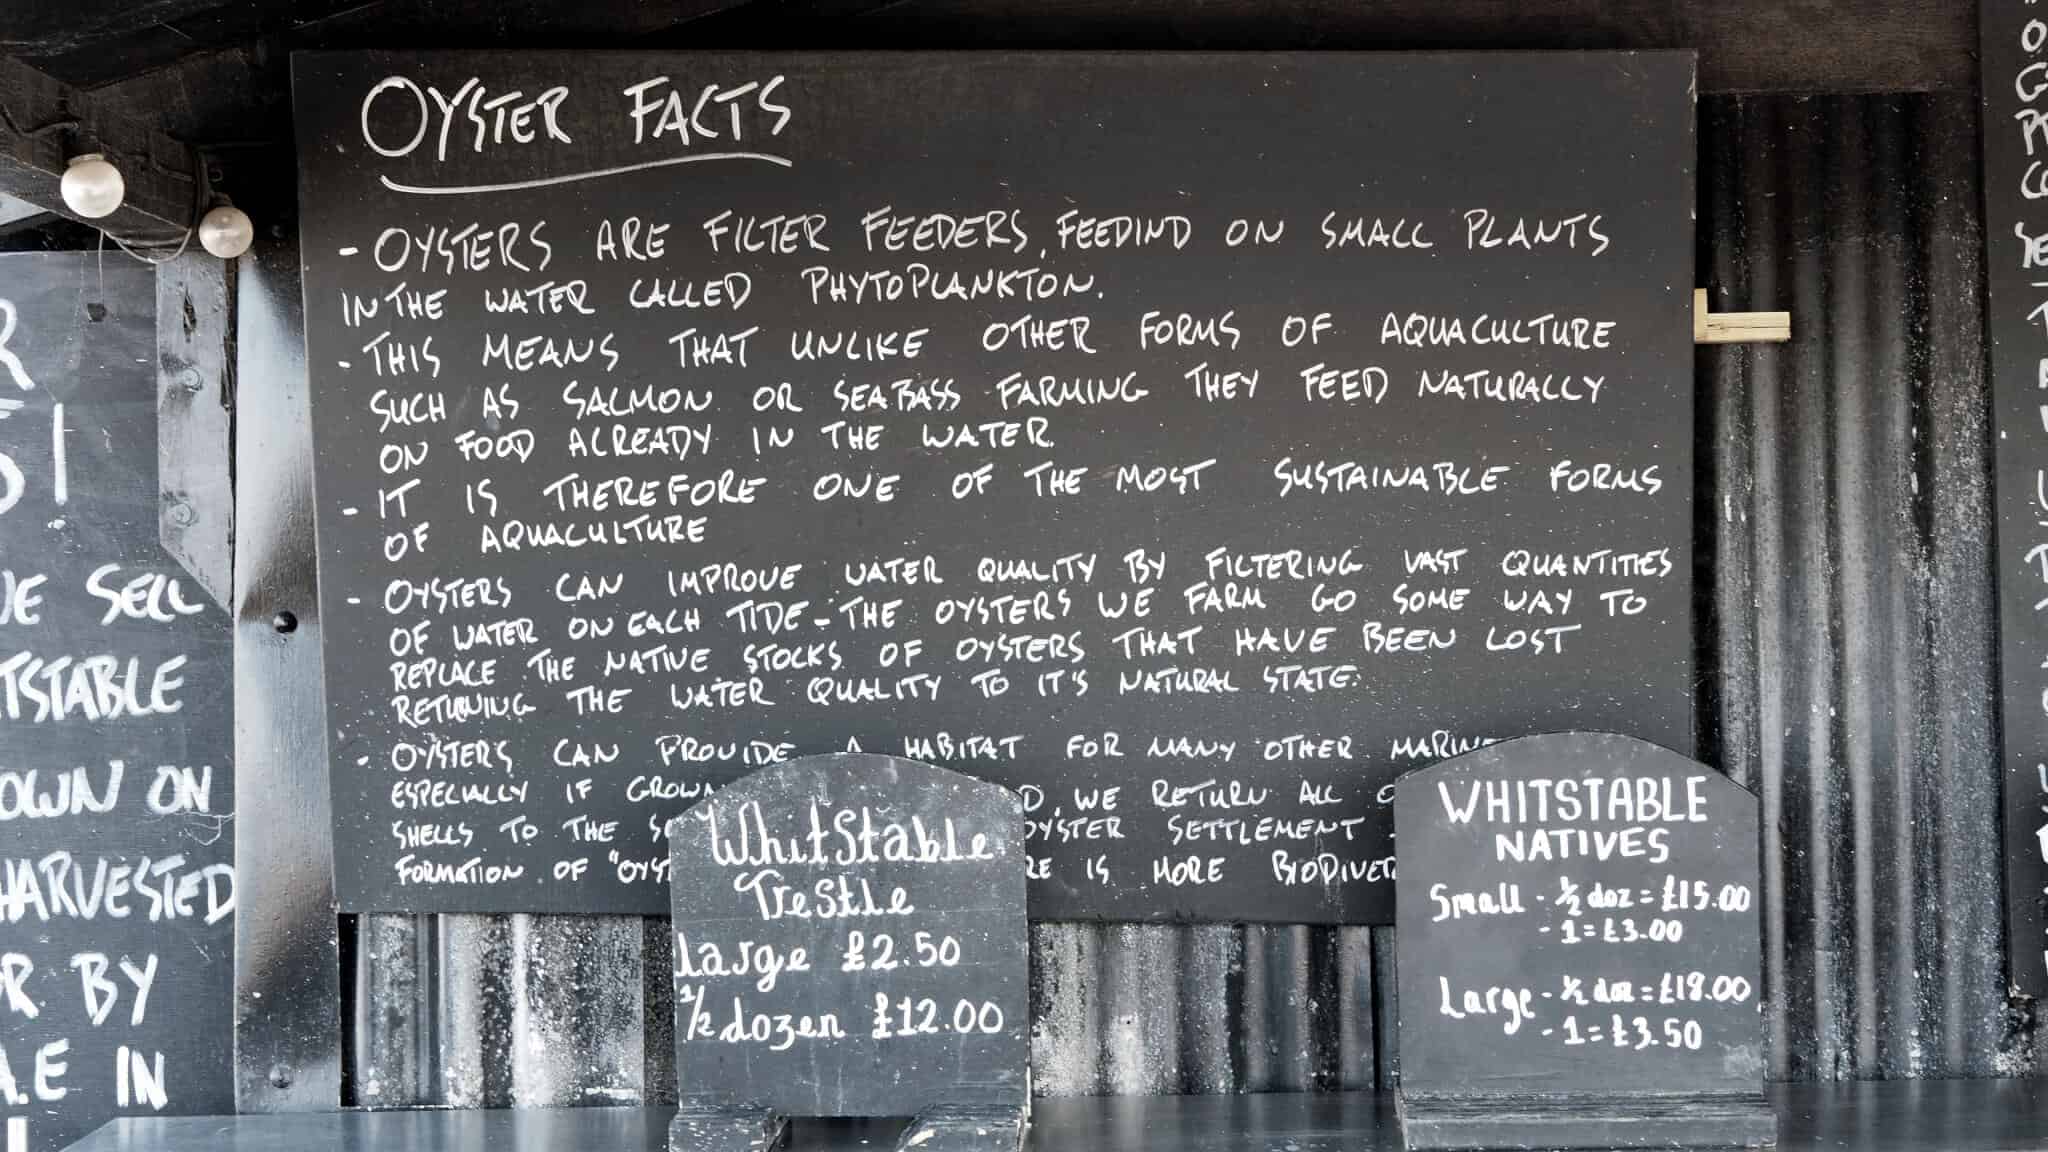 OYSTER FACTS
- OYSTERS ARE FILTER FEEDERS, FEEDIND ON SMALL PLANTS
IN THE WATER CALLED PHYTOPLANKTON.
- THIS MEANS THAT UNLIKE OTHER FORMS OF AQUACULTURE
SUCH AS SALMON OR SEABASS FARMING THEY FEED NATURALLY
ON FOOD ALREADY IN THE WATER.
- IT IS THEREFORE ONE OF THE MOST SUSTAINABLE FORMS
OF AQUACULTURE
- OYSTERS CAN IMPROVE WATER QUALITY BY FILTERING VAST QUANTITIES
OF WATER ON EACH TIDE - THE OYSTERS WE FARM GO SOME WAY TO
REPLACE THE NATIVE STOCKS OF OYSTERS THAT HAVE BEEN LOST
RETURNING THE WATER QUALITY TO IT'S NATURAL STATE.
- OYSTERS CAN PROVIDE A HABITAT FOR MANY OTHER MARINE
ESPECIALLY IF GROWN WE RETURN ALL
SHELLS TO THE OYSTER SETTLEMENT
FORMATION OF "OYST IS MORE BIODIVER
WhitStable
Trestle
Large £2.50
1/2 dozen £12.00
WHITSTABLE
NATIVES
Small - 1/2 doz = £15.00
- 1 = £3.00
Large - 1/2 doz = £19.00
- 1 = £3.50
SELL
TSTABLE
OWN ON
HARVESTED
BY
IN